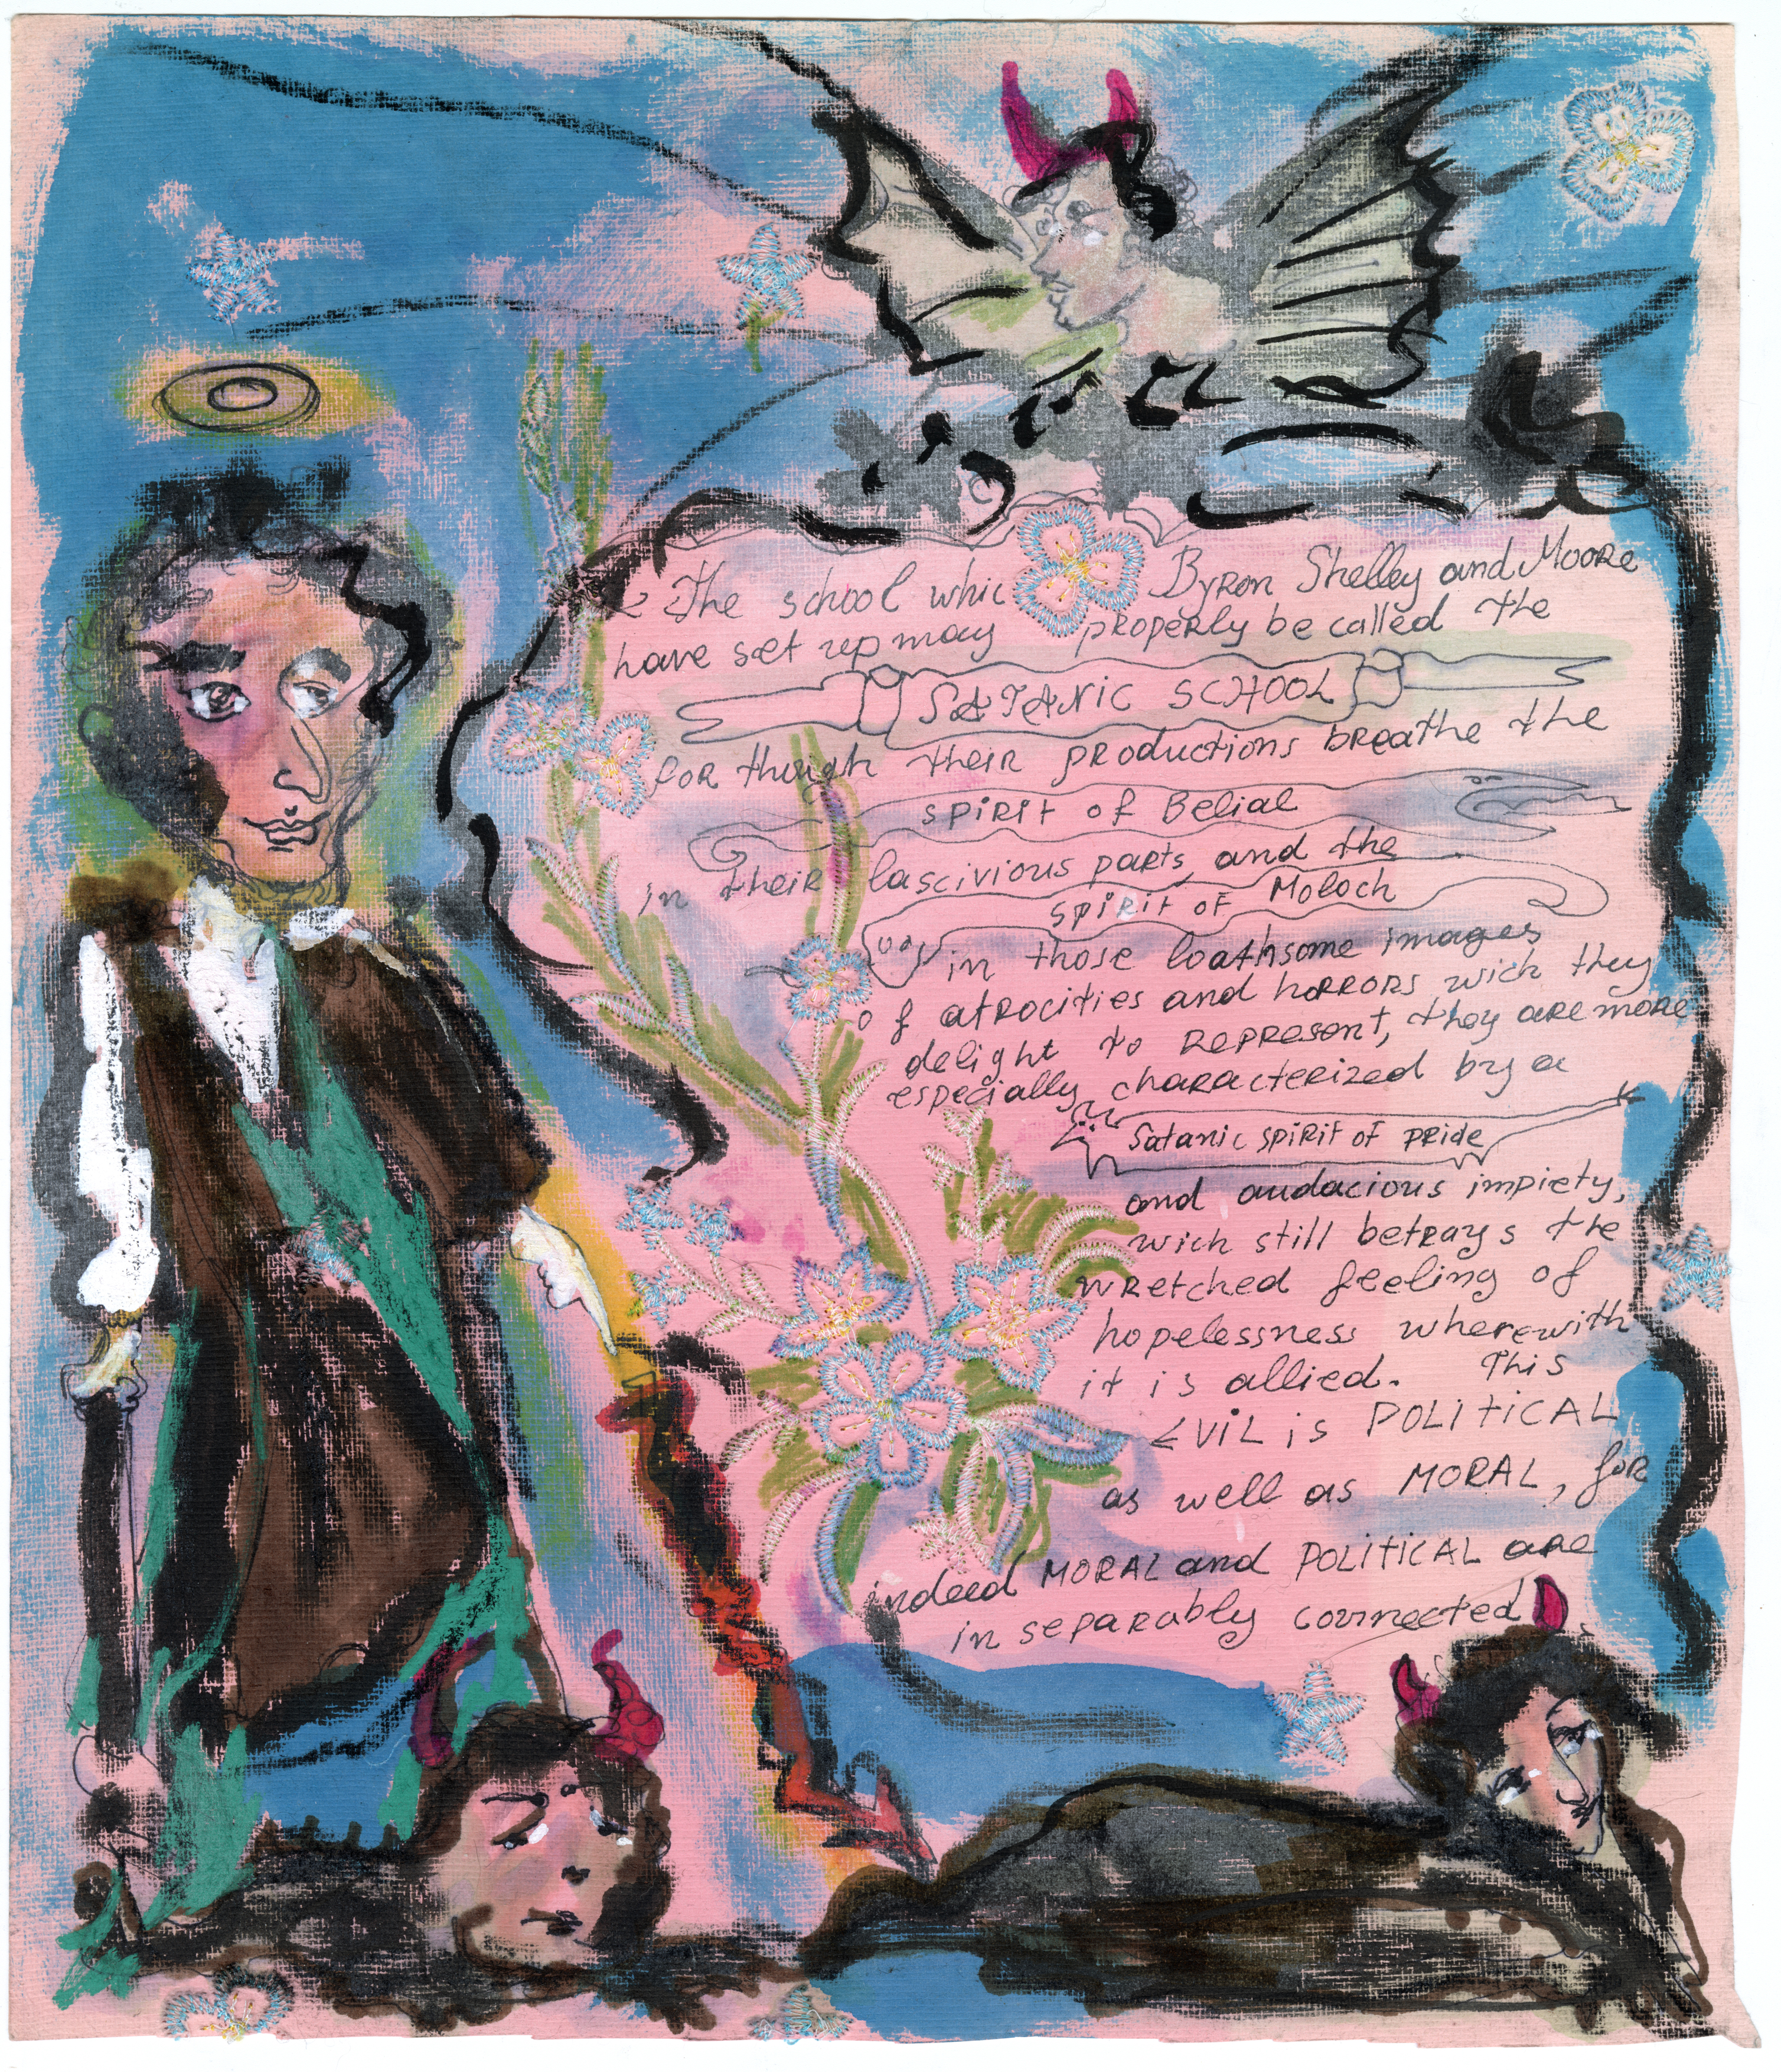 The school whic Byron Shelley and Moore
have set up may properly be called the
SATANIC SCHOOL
for though their productions breathe the
spirit of Belial
in their lascivious parts, and the
spirit of Moloch
in those loathsome images
of atrocities and horrors wich they
delight to represent, they are more
especially characterized by a
Satanic spirit of pride
and audacious impiety,
wich still betrays the
wretched feeling of
hopelessness wherewith
it is allied. This
EVIL is POLITICAL
as well as MORAL, for
indeed MORAL and POLITICAL are
inseparably connected